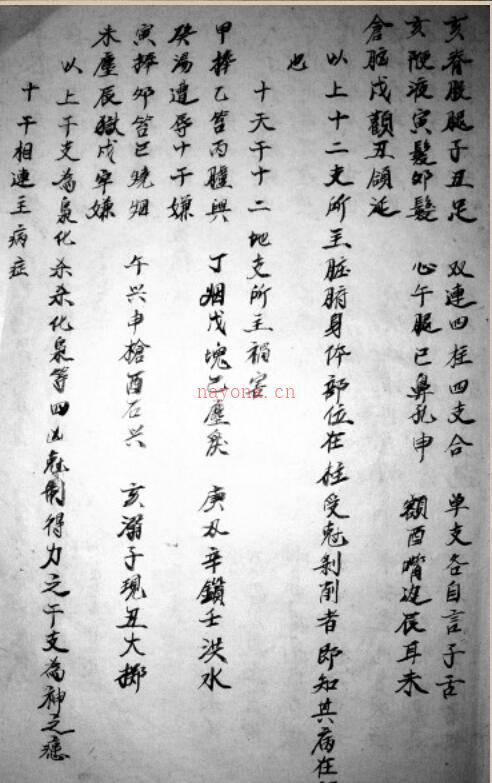 亥脊股腿子丑足 双连四柱四支合 单支各自言子舌
亥 液寅髮卯髮 心午眼巳鼻孔申 额酉嘴 辰耳未
仓脑戌颧丑颌延
以上十二支所主脏腑身体部位在柱受尅剥削者即知其病在
也
十天干十二地支所主祸害
甲捽乙笞丙 兴 丁烟戊块己尘炱 庚 辛鎖壬洪水
癸汤遭辱十干嫌
寅捽卯笞巳烧烟 午兴申枪酉石兴 亥溺子现丑大掷
未尘辰嶽戌牢嫌
以上干支为枭化杀杀化枭等四凶尅制得力之干支为神之
十干相连主病症
nayona.cn